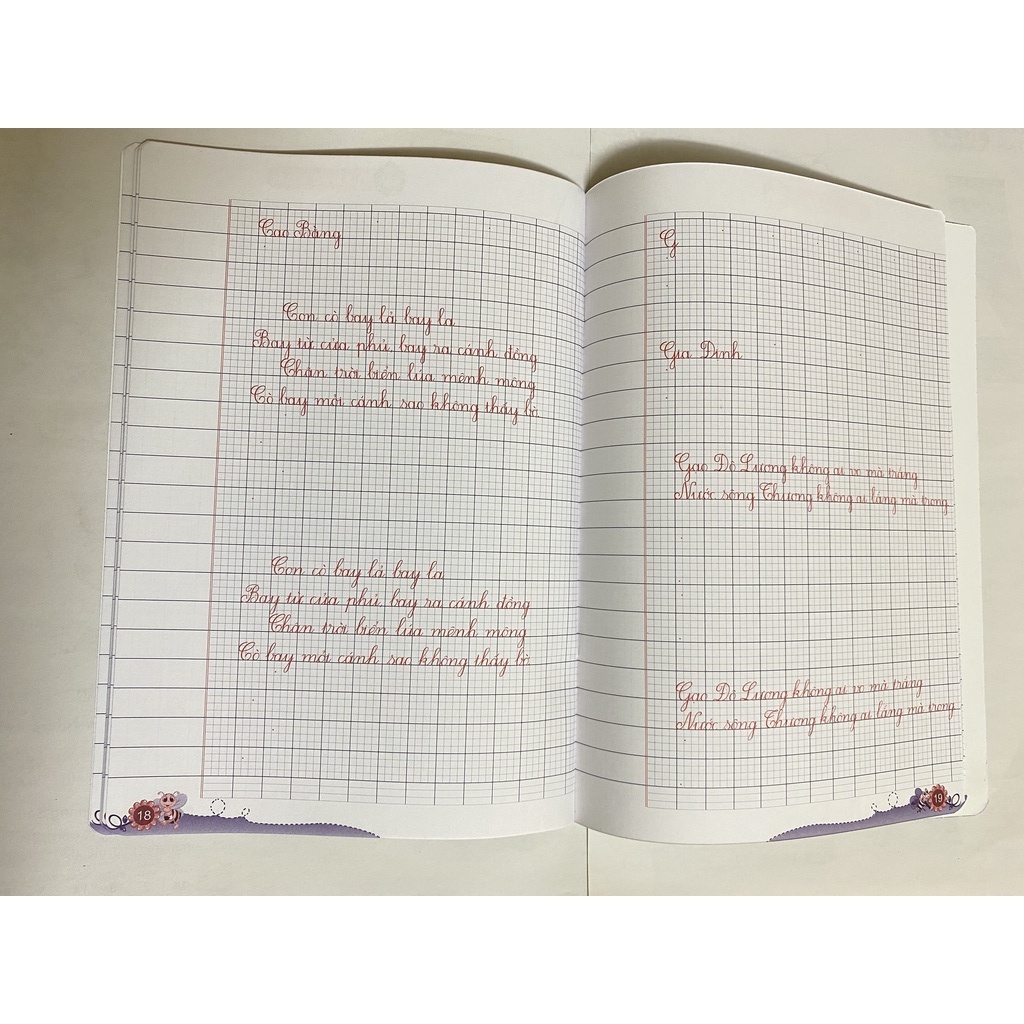 Cao Bằng
Con cò bay lả bay la
Bay từ cửa phủ, bay ra cánh đồng
Chân trời biển lúa mênh mông
Cò bay mỏi cánh sao không thấy bờ
Con cò bay lả bay la
Bay từ cửa phủ, bay ra cánh đồng
Chân trời biển lúa mênh mông
Cò bay mỏi cánh sao không thấy bờ
18
G
Gia Định
Gạo Đò Lương không ai vo mà trắng
Nước sông Thương không ai lắng mà trong
Gạo Đò Lương không ai vo mà trắng
Nước sông Thương không ai lắng mà trong
19